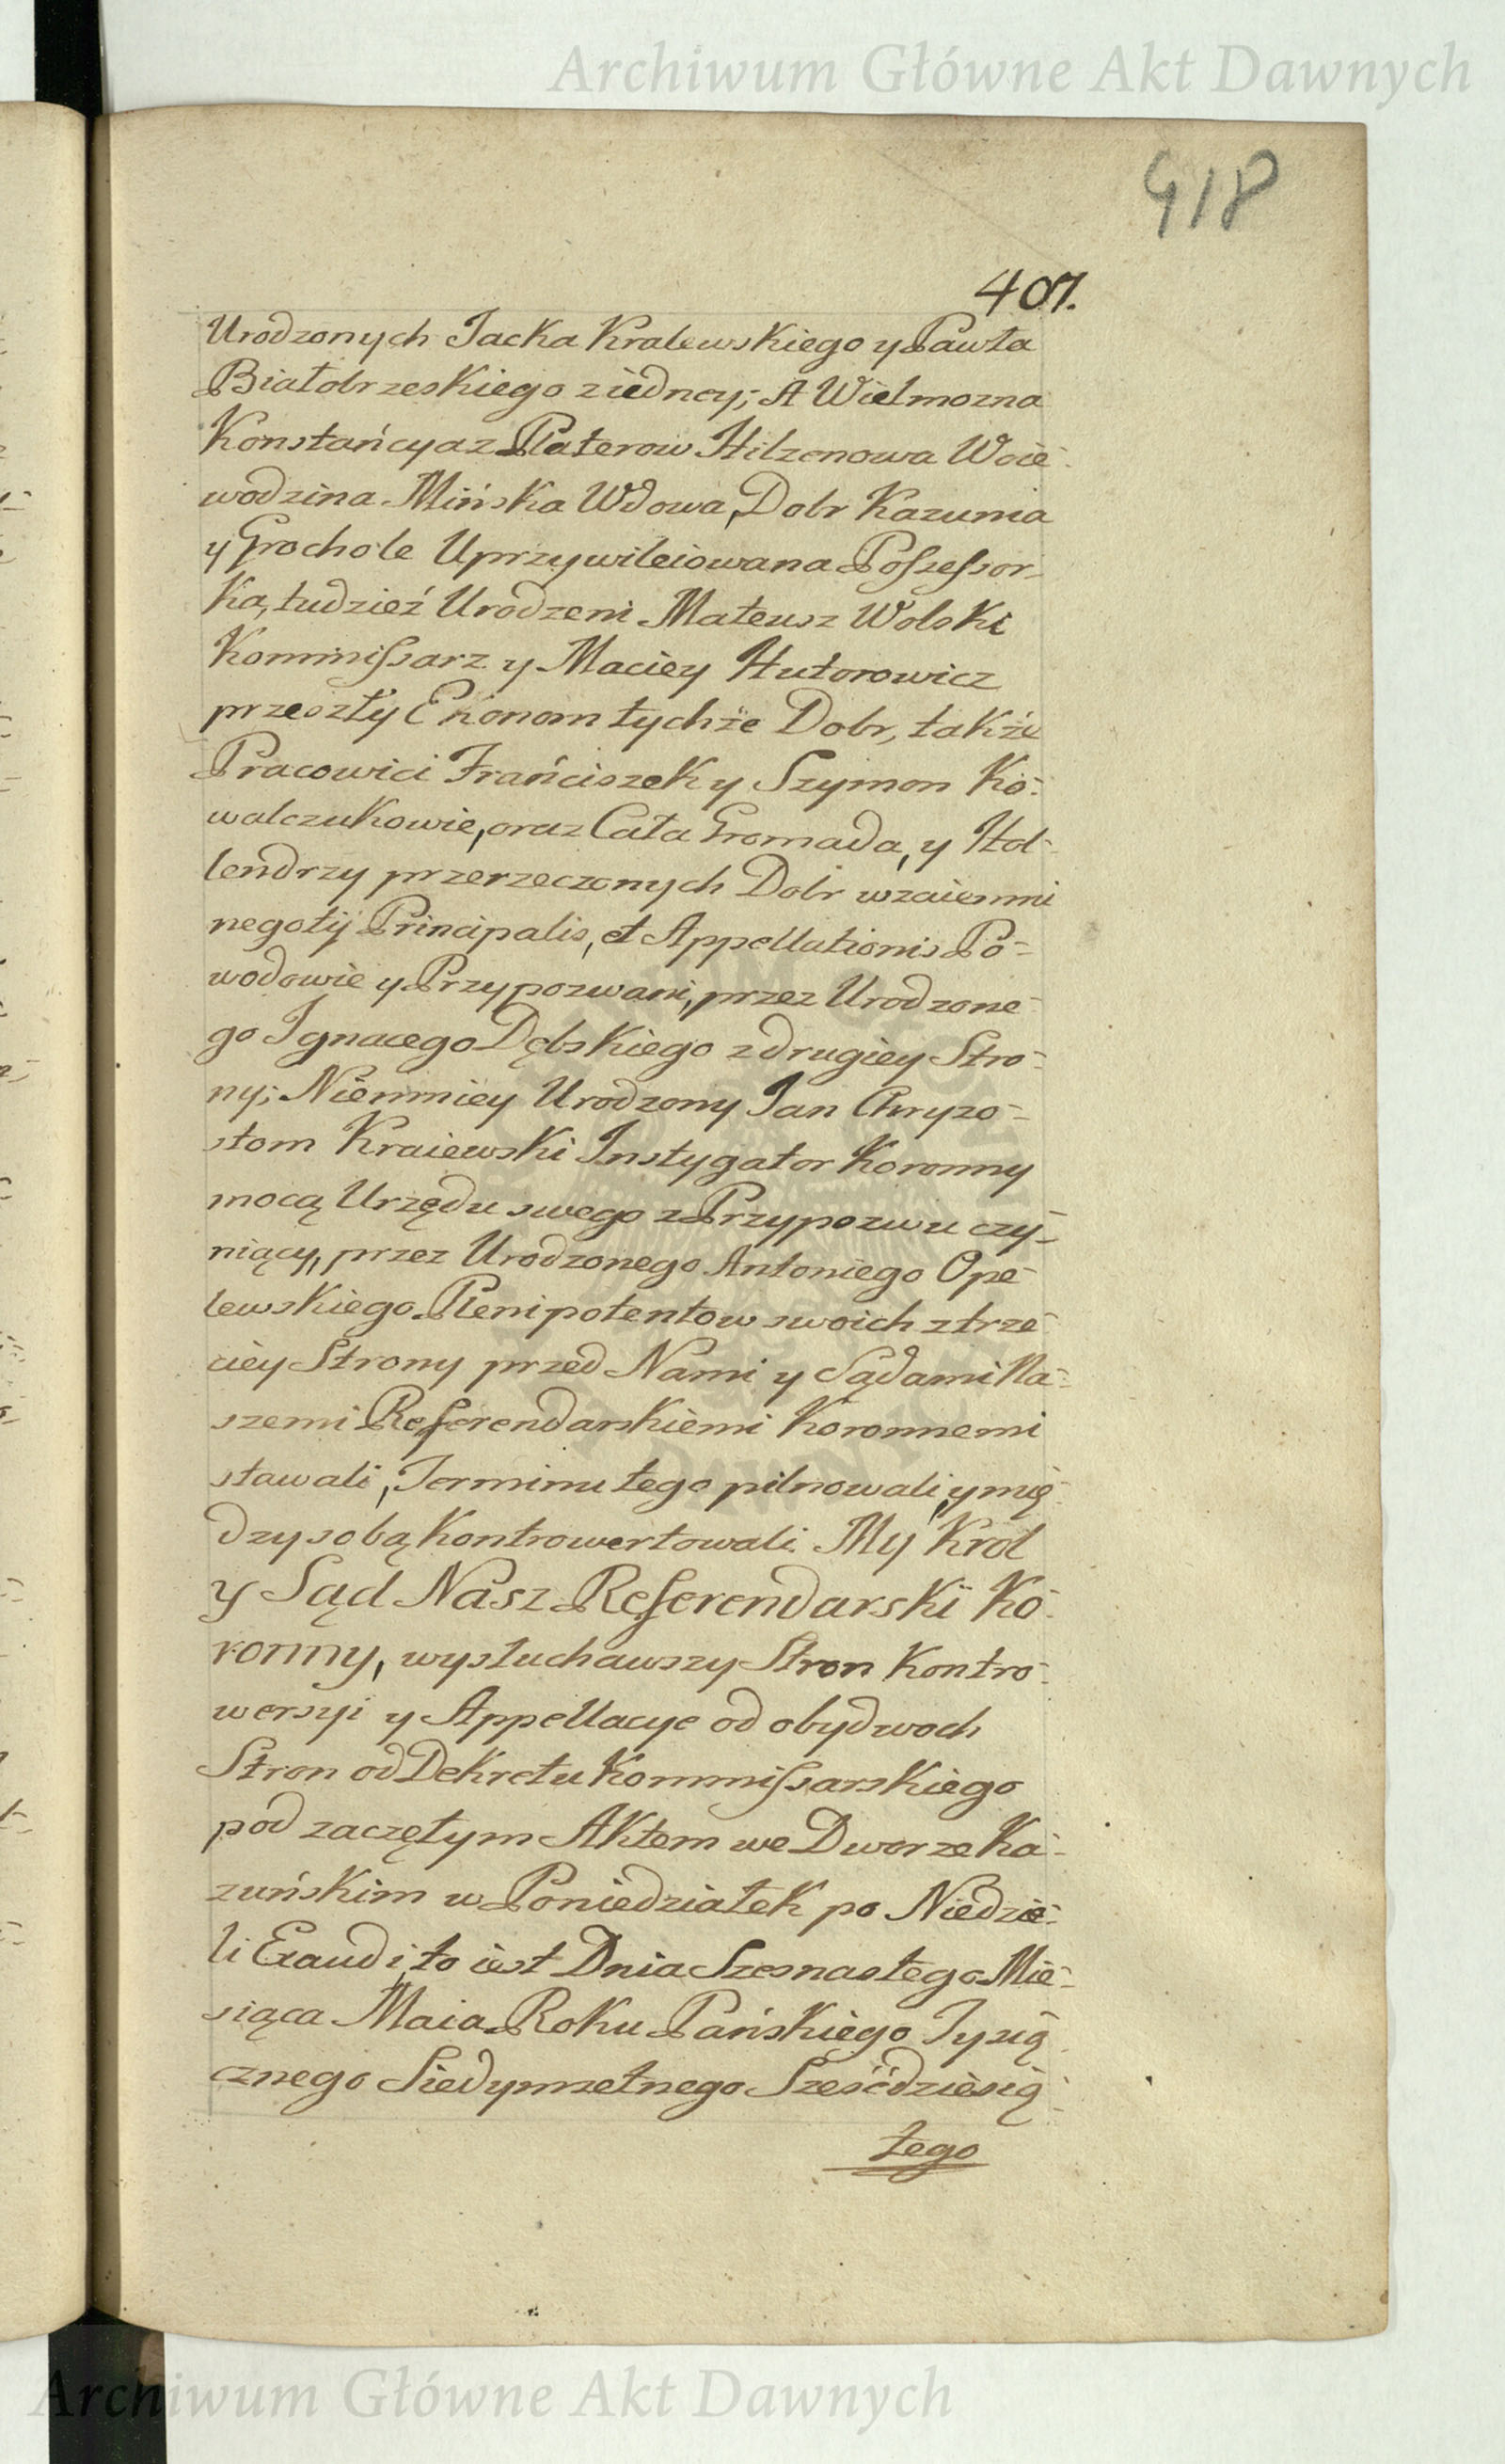 Archiwum Główne Akt Dawnych
418
407.
Urodzonych Jacka Kralewskiego y Pawła
Białobrzeskiego z iedney; A Wielmozna
Konstańcya z Platerow Hilzenowa Woie-
wodzina Mińska Wdowa, Dobr Kazunia
y Grochole Uprzywileiowana Possessor-
ka, tudzież Urodzeni Mateusz Wolski
Kommissarz y Maciey Hutorowicz
przeszły Ekonom tychże Dobr, także
Pracowici Frańciszek y Szymon Ko-
walczukowie, oraz Cała Gromada, y Hol-
lendrzy przerzeczonych Dobr wzaiemni
negotij Principalis, et Appellationis Po-
wodowie y Przypozwani, przez Urodzone-
go Ignacego Dębskiego z drugiey Stro-
ny; Niemniey Urodzony Jan Chryzo-
stom Kraiewski Instygator Koronny
mocą Urzędu swego z Przypozwu czy-
niący, przez Urodzonego Antoniego Ope-
lewskiego Plenipotentow swoich z trze-
ciey Strony przed Nami y Sądami Na-
szemi Referendarskiemi Koronnemi
stawali, Terminu tego pilnowali, y mię-
dzy sobą kontrowertowali. My Krol
y Sąd Nasz Referendarski Ko-
ronny, wysłuchawszy Stron Kontro-
wersyi y Appellacye od obydwoch
Stron od Dekretu Kommissarskiego
pod zaczętym Aktem we Dworze Ka-
zuńskim w Poniedziałek po Niedzie-
li Exaudi, to iest Dnia Szesnastego Mie-
siąca Maia Roku Pańskiego Tysią-
cznego Siedymsetnego Sześćdziesią-
tego
Archiwum Główne Akt Dawnych